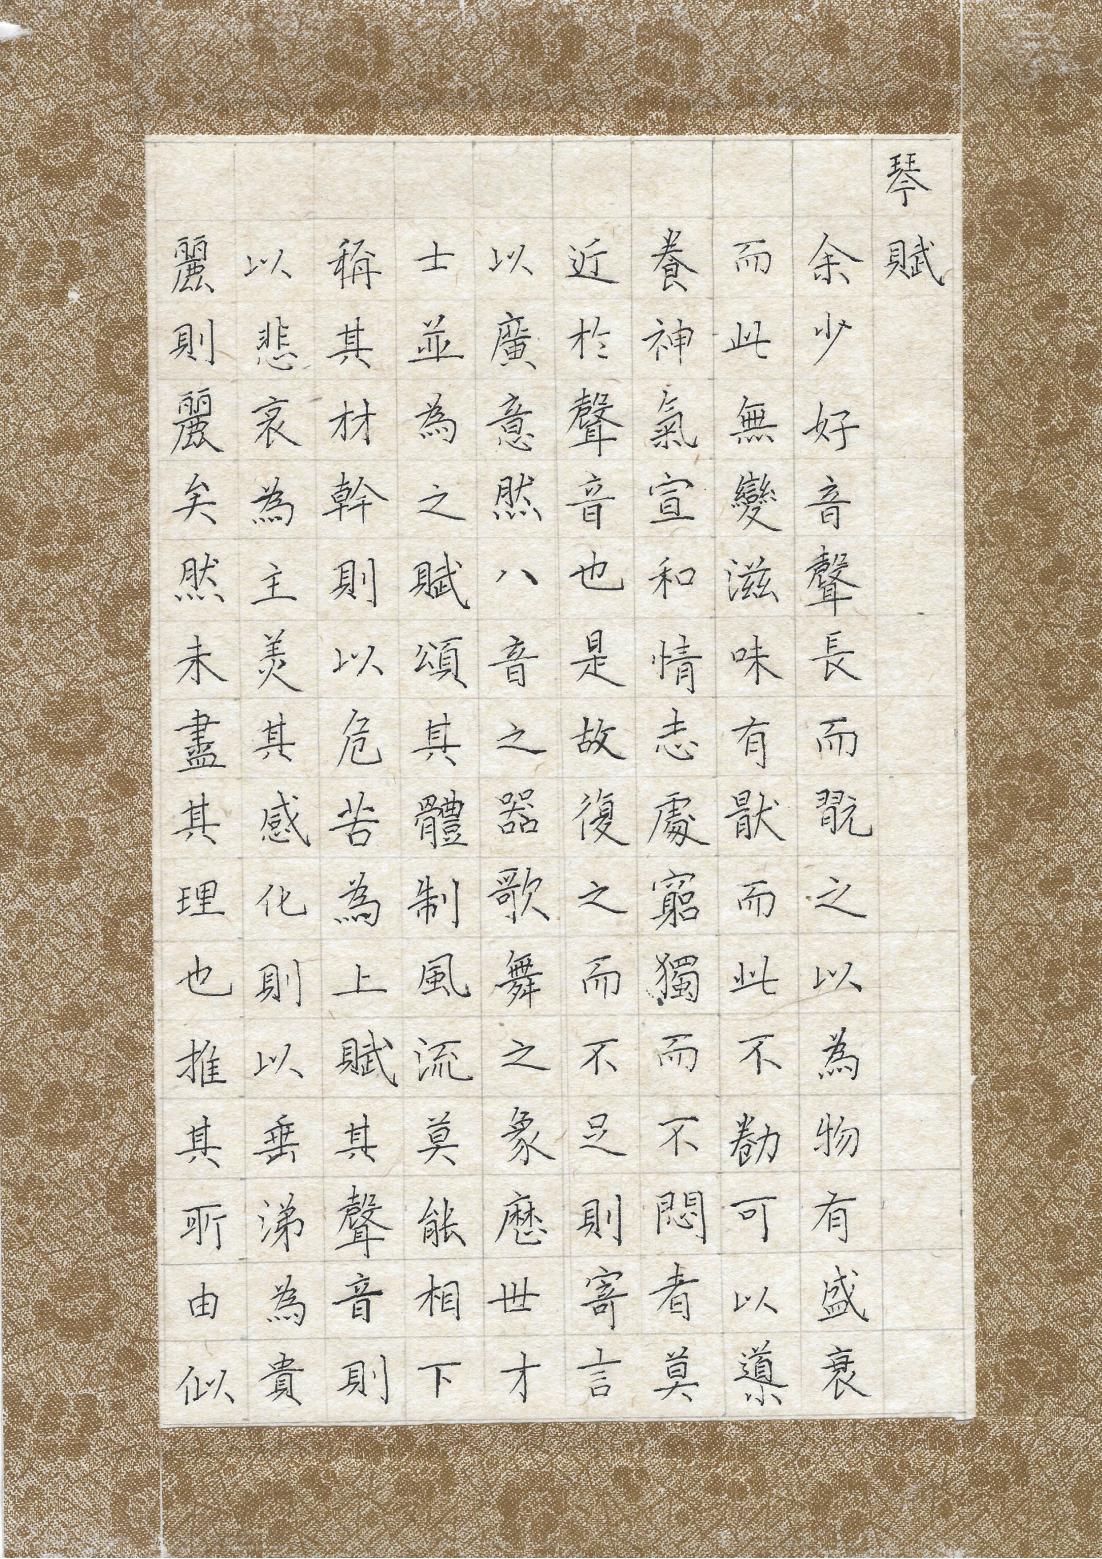 琴賦
余少好音聲長而翫之以為物有盛衰
而此無變滋味有猒而此不勌可以導
養神氣宣和情志處窮獨而不悶者莫
近於聲音也是故復之而不足則寄言
以廣意然八音之器歌舞之象歷世才
士並為之賦頌其體制風流莫能相下
稱其材幹則以危苦為上賦其聲音則
以悲哀為主美其感化則以垂涕為貴
麗則麗矣然未盡其理也推其所由似